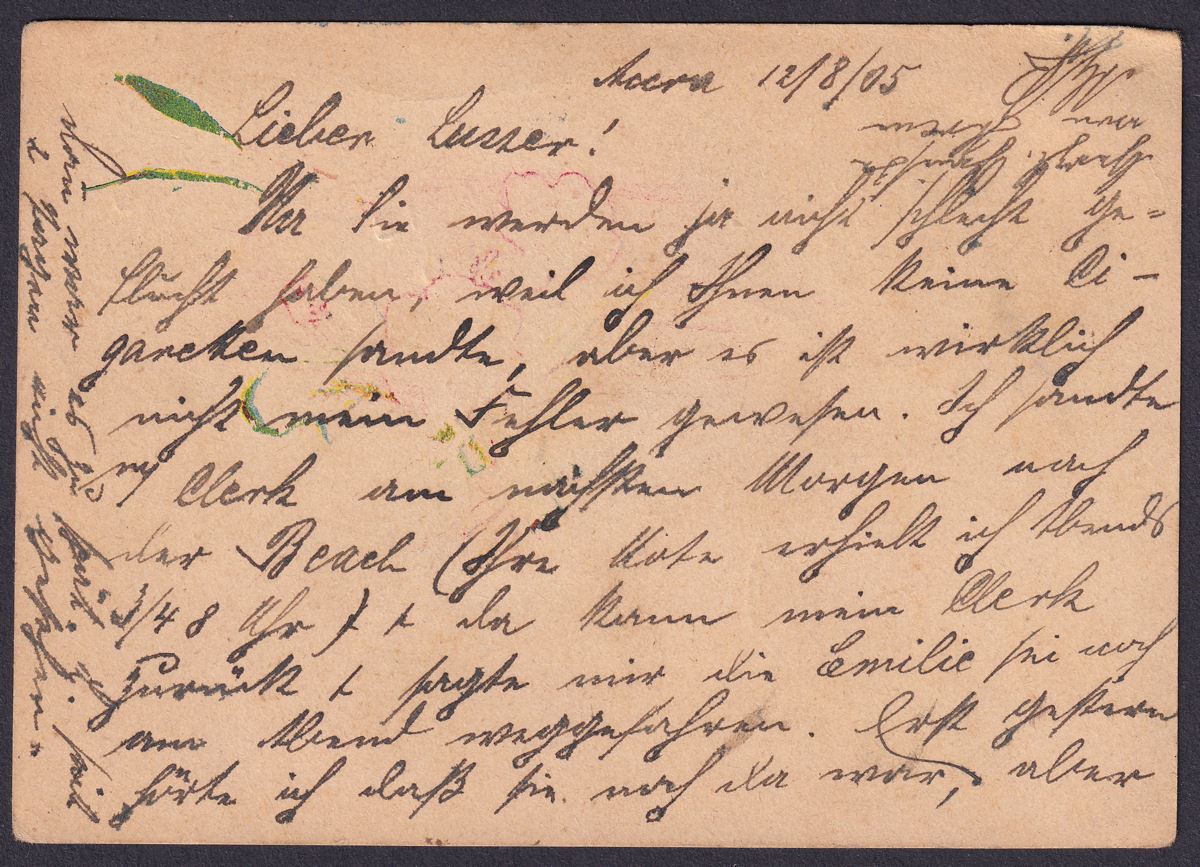 Accra 12/8/05
Lieber Lusser!
Na Sie werden ja nicht schlecht ge=
flucht haben, weil ich Ihnen keine Ci-
garetten sandte, aber es ist wirklich
nicht mein Fehler gewesen. Ich sandte
m/ Clerk am nächsten Morgen nach
der Beach (Ihre Note erhielt ich Abends
3/4 8 Uhr) + da kam mein Clerk
zurück + sagte mir die Emilie sei noch
am Abend weggefahren. Erst gestern
hörte ich daß sie noch da war, aber
dann war es zu spät. Ich